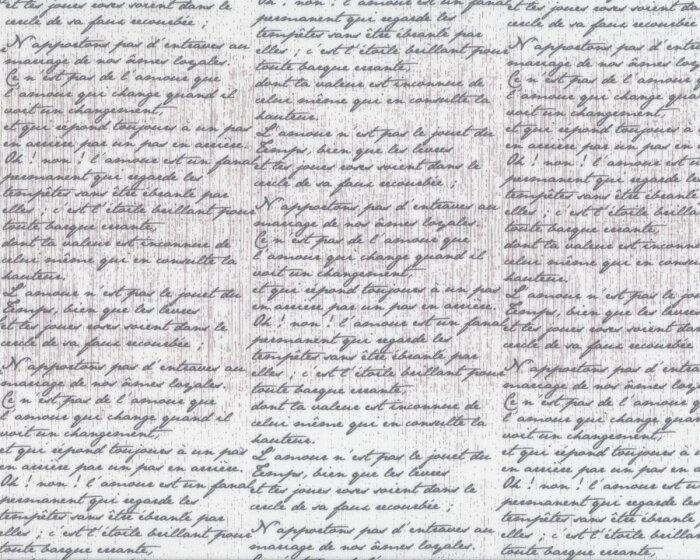 et les joues roses soient dans le
cercle de sa faux recourbée ;
N'apportons pas d'entraves au
mariage de nos âmes loyales.
Ce n'est pas de l'amour que
l'amour qui change quand il
voit un changement,
et qui répond toujours à un pas
en arrière par un pas en arrière.
Oh ! non ! l'amour est un fanal
permanent qui regarde les
tempêtes sans être ébranlé par
elles ; c'est l'étoile brillant pour
toute barque errante,
dont la valeur est inconnue de
celui même qui en consulte la
hauteur.
L'amour n'est pas le jouet du
Temps, bien que les lèvres
et les joues roses soient dans le
cercle de sa faux recourbée ;
N'apportons pas d'entraves au
mariage de nos âmes loyales.
Ce n'est pas de l'amour que
l'amour qui change quand il
voit un changement,
et qui répond toujours à un pas
en arrière par un pas en arrière.
Oh ! non ! l'amour est un fanal
permanent qui regarde les
tempêtes sans être ébranlé par
elles ; c'est l'étoile brillant pour
toute barque errante,
Oh ! non ! l'amour est un fanal
permanent qui regarde les
tempêtes sans être ébranlé par
elles ; c'est l'étoile brillant pour
toute barque errante,
dont la valeur est inconnue de
celui même qui en consulte la
hauteur.
L'amour n'est pas le jouet du
Temps, bien que les lèvres
et les joues roses soient dans le
cercle de sa faux recourbée ;
N'apportons pas d'entraves au
mariage de nos âmes loyales.
Ce n'est pas de l'amour que
l'amour qui change quand il
voit un changement,
et qui répond toujours à un pas
en arrière par un pas en arrière.
Oh ! non ! l'amour est un fanal
permanent qui regarde les
tempêtes sans être ébranlé par
elles ; c'est l'étoile brillant pour
toute barque errante,
dont la valeur est inconnue de
celui même qui en consulte la
hauteur.
L'amour n'est pas le jouet du
Temps, bien que les lèvres
et les joues roses soient dans le
cercle de sa faux recourbée ;
N'apportons pas d'entraves au
mariage de nos âmes loyales.
et les joues roses soient de
cercle de sa faux recourbée
N'apportons pas d'entra
mariage de nos âmes loyal
Ce n'est pas de l'amour q
l'amour qui change quan
voit un changement,
et qui répond toujours à un
en arrière par un pas en
Oh ! non ! l'amour est un
permanent qui regarde les
tempêtes sans être ébranlé
elles ; c'est l'étoile brillant
toute barque errante,
dont la valeur est inconnu
celui même qui en consult
hauteur.
L'amour n'est pas le jou
Temps, bien que les lèvres
et les joues roses soient da
cercle de sa faux recourbée
N'apportons pas d'entra
mariage de nos âmes loya
Ce n'est pas de l'amour q
l'amour qui change qua
voit un changement,
et qui répond toujours à u
en arrière par un pas en
Oh ! non ! l'amour est un
permanent qui regarde les
tempêtes sans être ébranlé
elles ; c'est l'étoile brillant
toute barque errante,